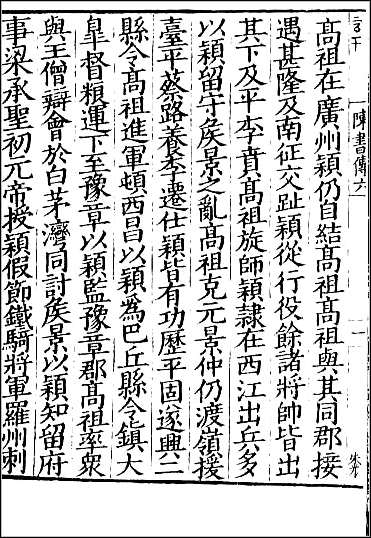 陳書傳六
一
高祖在廣州穎仍自結高祖高祖與其同郡接
遇甚隆及南征交趾穎從行役餘諸將帥皆出
其下及平李賁高祖旋師穎隸在西江出兵多
以穎留守矦景之亂高祖克元景仲仍渡嶺援
臺平蔡路養李遷仕穎皆有功歷平固遂興二
縣令高祖進軍頓西昌以穎爲巴丘縣令鎮大
臯督粮運下至豫章以穎監豫章郡高祖率衆
與王僧辯會於白茅灣同討矦景以穎知留府
事梁承聖初元帝授穎假節鐵騎將軍羅州刺